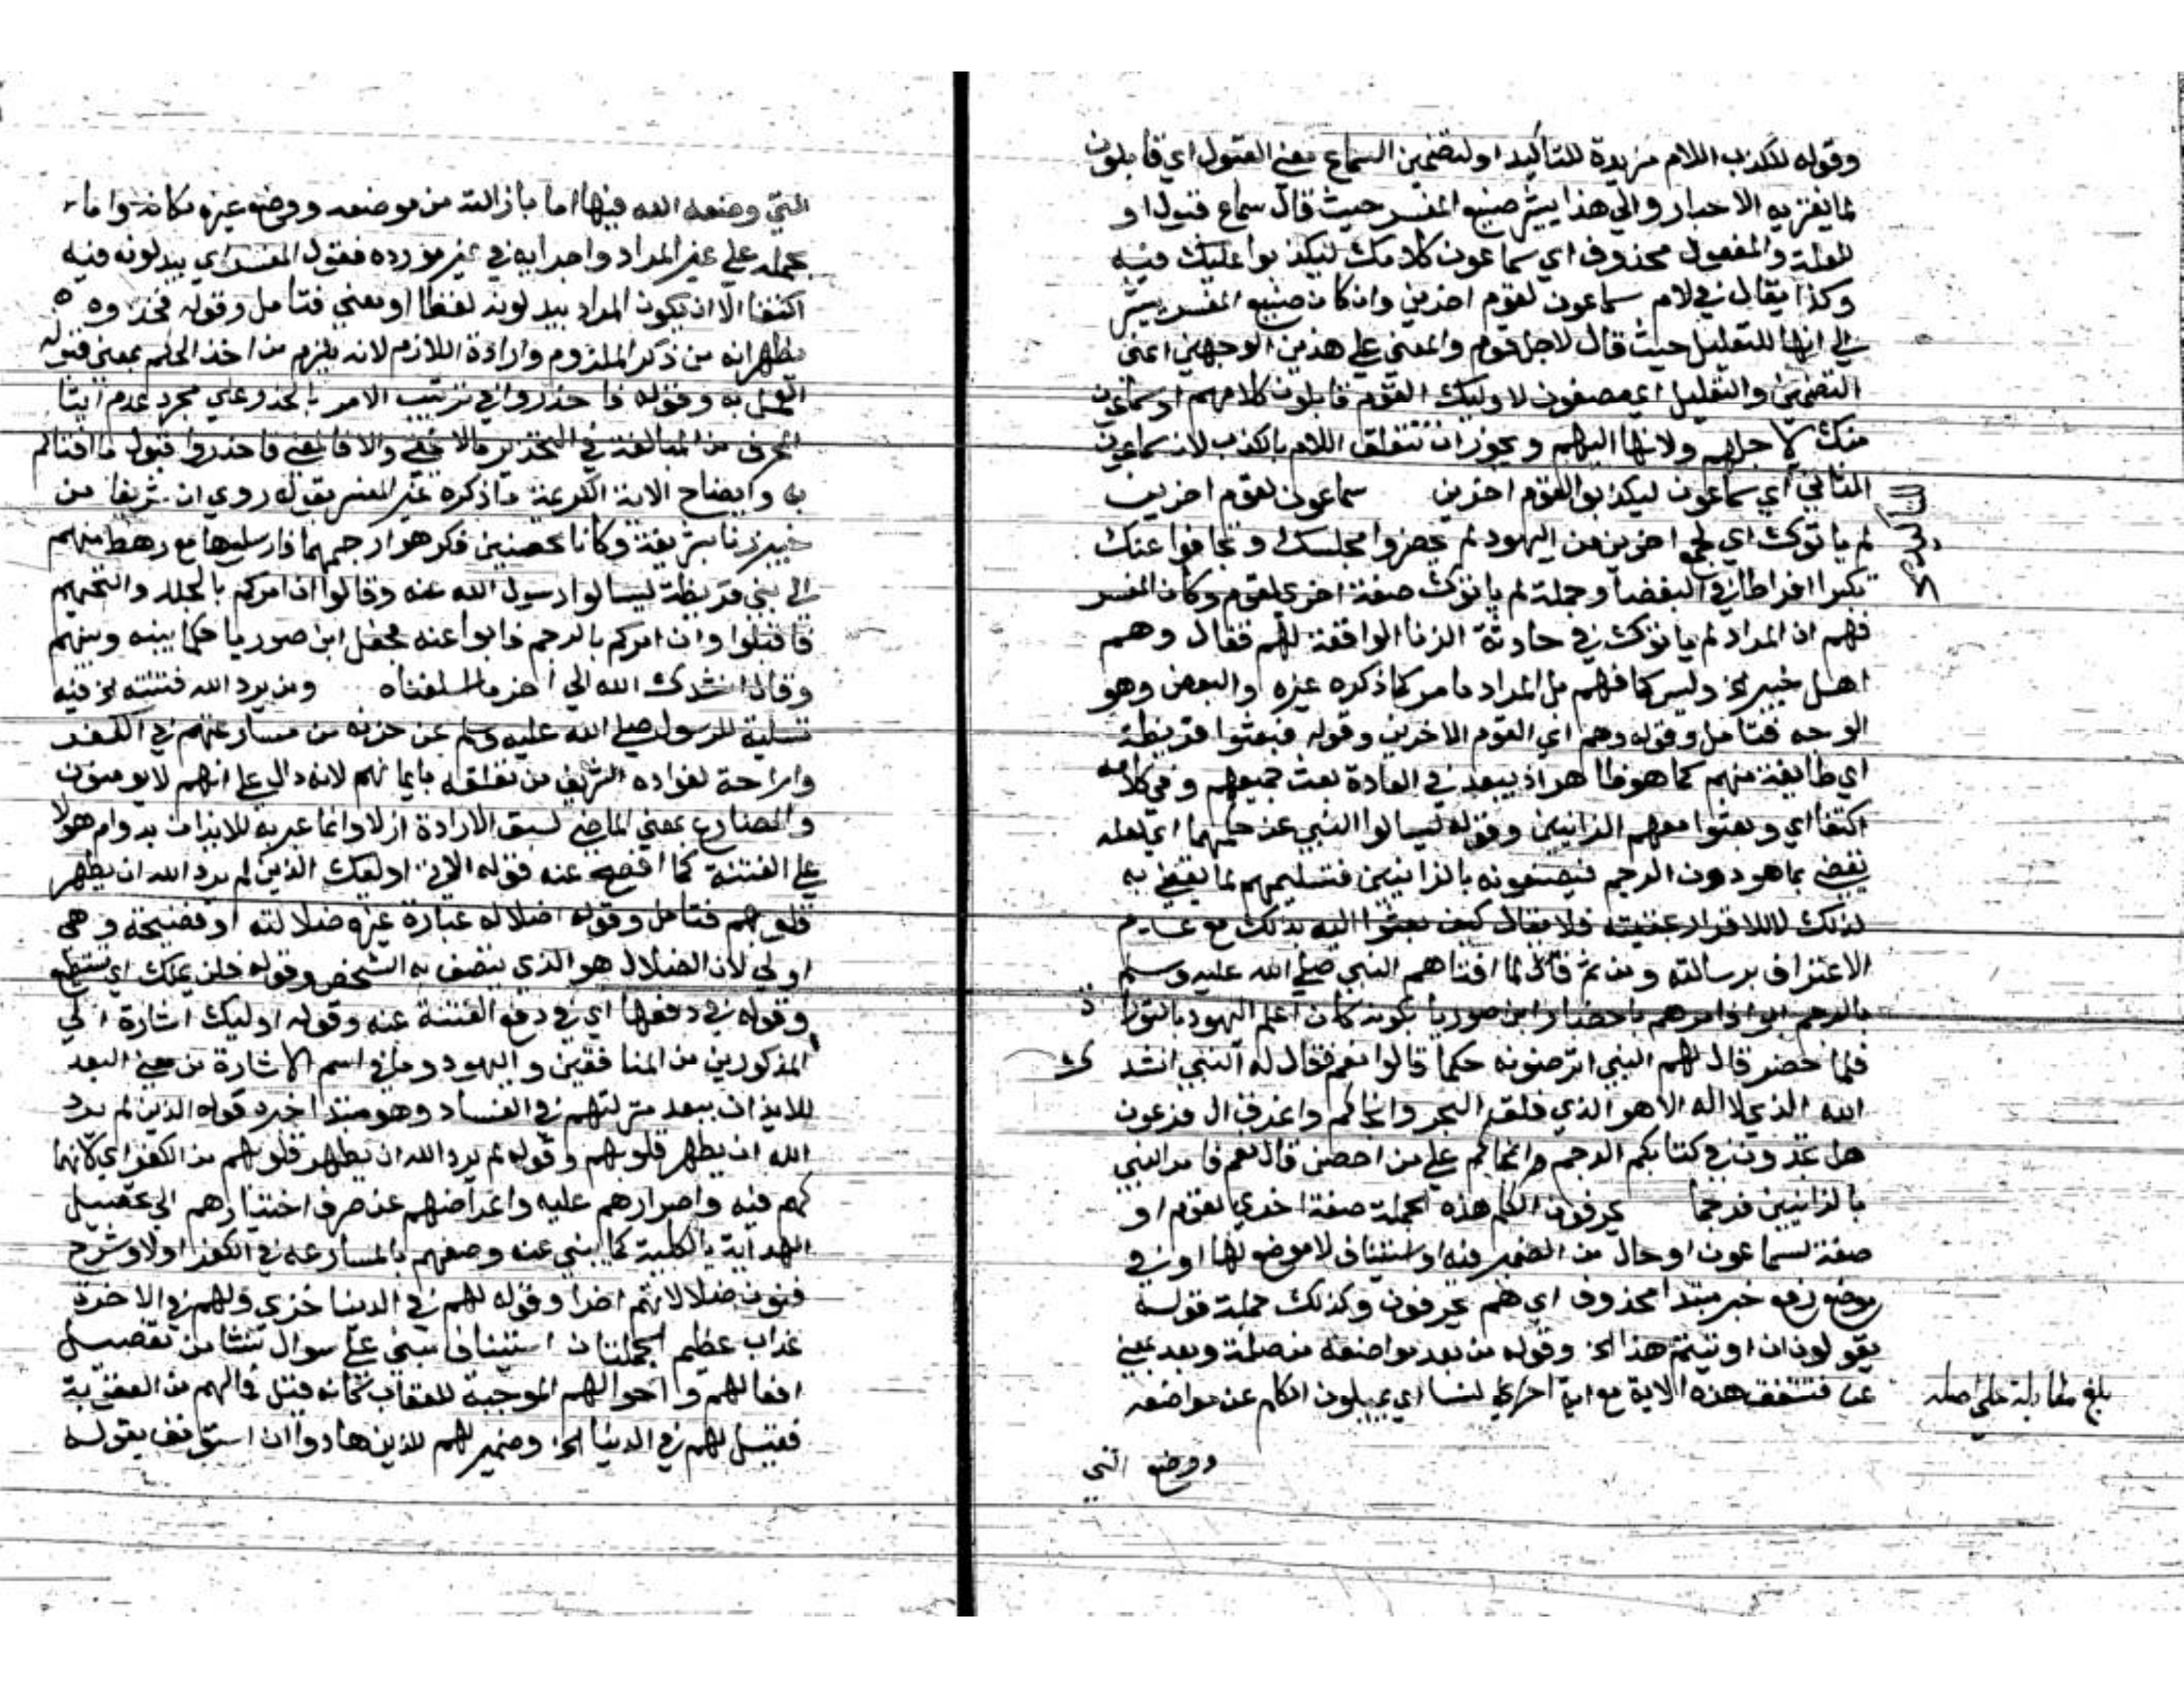 وقوله للكذب اللام مزيدة للتاكيد او لتضمين السماع معني القبول اي قابلون
لما يفتريه الاحبار والي هذا يشير صنيع المفسر حيث قال سماع قبول او
للعلة والمفعول محذوف اي سماعون كلامك ليكذبوا عليك فيه
وكذا يقال في لام سماعون لقوم اخرين وان كان صنيع المفسر يشير
الي انها للتعليل حيث قال لاجل قوم والمعني علي هذين الوجهين اعني
التضمين والتعليل اي مصغون لاوليك القوم قابلون كلامهم او سماعون
منك لاجلهم ولانها اليهم ويجوز ان تتعلق اللام بالكذب لان سماعون
الثاني اي سماعون ليكذبوا لقوم اخرين سماعون لقوم اخرين
لم ياتوك اي لجمع اخرين من اليهود لم يحضروا مجلسك وتجافوا عنك
تكبرا افراطا في البغضا وجملة لم ياتوك صفة اخري لقوم وكان المفسر
فهم ان المراد لم ياتوك في حادثة الزنا الواقعة لهم فقال وهم
اهل خيبر الخ وليس كما فهم بل المراد ما مر كما ذكره غيره والبعض وهو
الوجه فتامل وقوله وهم اي القوم الاخرين وقوله فبعثوا قريظة
اي طايفة منهم كما هو ظاهر اذ يبعد في العادة بعث جميعهم وفي كلامه
اكتفا اي وبعثوا معهم الزانيين وقوله ليسالوا النبي عن حكمهما اي لعله
يقضي بما هو دون الرجم فيصنعونه بالزانيين فتسليمهم لما يقضي به
لذلك لا للاقرار بحقيته فلا يقال كيف بعثوا اليه بذلك مع عدم
الاعتراف برسالته ومن ثم قال لما افتاهم النبي صلي الله عليه وسلم
بالرجم ابوا فامرهم باحضار ابن صوريا لكونه كان اعلم اليهود بالتوراة
فلما حضر قال لهم النبي اترضونه حكما قالوا نعم فقال له النبي انشدك
الله الذي لا اله الا هو الذي فلق البحر وانجاكم واغرق ال فرعون
هل تجدون في كتابكم الرجم علي من احصن قال نعم فامر النبي
بالزانيين فرجما يحرفون الكلم هذه الجملة صفة اخري لقوم او
صفة لسماعون او حال من الضمير فيه او استيناف لا موضع لها او في
موضع رفع خبر مبتدا محذوف اي هم يحرفون وكذلك جملة قوله
يقولون ان اوتيتم هذا الخ وقوله من بعد مواضعه من صلة وبعد بمعني
عن فتتفق هذه الاية مع اية اخري لنسا اي يميلون الكلم عن مواضعه
ووضع التي
بلغ مقابلة علي اصله
التي وضعه الله فيها اما بازالته من موضعه ووضع غيره مكانه واما
بحمله علي غير المراد واجرايه في غير مورده فقول المفسر اي يبدلونه فيه
اكتفا الا ان يكون المراد يبدلونه لفظا او معني فتامل وقوله فخذوه
يظهر انه من ذكر الملزوم وارادة اللازم لانه يلزم من اخذ الحكم بمعني قبوله
العمل به وقوله فاحذروا في ترتيب الامر بالحذر علي مجرد عدم ايتا
المحرف من المبالغة في التحذير ما لا يخفي والا فالمعني فاحذروا قبول ما افتاكم
به وايضاح الاية الكريمة ما ذكره غير المفسر بقوله روي ان شريفا من
خيبر زنا بشريفة وكانا محصنين فكرهوا رجمهما فارسلوهما مع رهط منهم
الي بني قريظة ليسالوا رسول الله عنه وقالوا ان امركم بالجلد والتحميم
فاقبلوا وان امركم بالرجم فابوا عنه فجعل ابن صوريا حكما بينه وبينهم
وقال انشدك الله الي اخر ما اسلفناه ومن يرد الله فتنته الخ فيه
تسلية للرسول صلي الله عليه وسلم عن حزنه من مسارعتهم في الكفر
واراحة لفواده الشريف من تعلقه بايمانهم لانه دال علي انهم لا يومنون
والمضارع بمعني الماضي لسبق الارادة ازلا وانما عبر به للايذان بدوام هولا
علي الفتنة كما افصح عنه قوله الاتي اوليك الذين لم يرد الله ان يطهر
قلوبهم فتامل وقوله اضلاله عبارة غيره ضلالته او فضيحته وهي
اولي لان الضلال هو الذي يتصف به الشخص وقوله فلن تملك اي تستطيع
وقوله في دفعها اي في دفع الفتنة عنه وقوله اوليك اشارة الي
المذكورين من المنافقين واليهود وما في اسم الاشارة من معني البعد
للايذان ببعد منزلتهم في الفساد وهو مبتدا خبره قوله الذين لم يرد
الله ان يطهر قلوبهم وقوله لم يرد الله ان يطهر قلوبهم من الكفر اي لانهما
كهم فيه واصرارهم عليه واعراضهم عن صرف اختيارهم الي تحصيل
الهداية بالكلية كما ينبي عنه وصفهم بالمسارعة في الكفر اولا وشرح
فنون ضلالاتهم اخرا وقوله لهم في الدنيا خزي ولهم في الاخرة
عذاب عظيم الجملتان استيناف مبني علي سوال نشا من تفصيل
افعالهم واحوالهم الموجبة للعقاب كانه قيل فما لهم من العقوبة
فقيل لهم في الدنيا الخ وضمير لهم للذين هادوا ان استونف بقوله